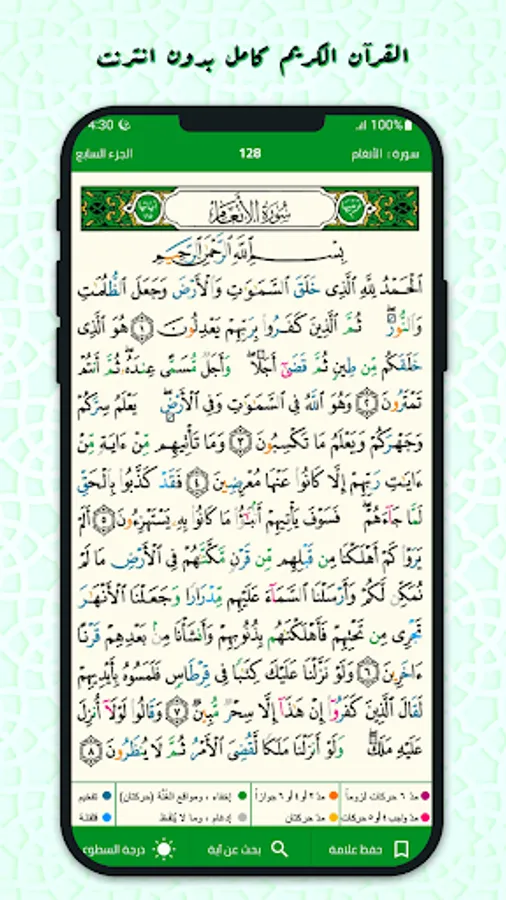 القرآن الكريم كامل بدون انترنت
4:30 100%
سورة : الأنعام 128 الجزء السابع
سُورَةُ الأَنْعَامِ
بِسْمِ ٱللَّهِ ٱلرَّحْمَٰنِ ٱلرَّحِيمِ
ٱلْحَمْدُ لِلَّهِ ٱلَّذِى خَلَقَ ٱلسَّمَٰوَٰتِ وَٱلْأَرْضَ وَجَعَلَ ٱلظُّلُمَٰتِ
وَٱلنُّورَ ۖ ثُمَّ ٱلَّذِينَ كَفَرُوا۟ بِرَبِّهِمْ يَعْدِلُونَ ١ هُوَ ٱلَّذِى
خَلَقَكُم مِّن طِينٍ ثُمَّ قَضَىٰٓ أَجَلًا ۖ وَأَجَلٌ مُّسَمًّى عِندَهُۥ ۖ ثُمَّ أَنتُمْ
تَمْتَرُونَ ٢ وَهُوَ ٱللَّهُ فِى ٱلسَّمَٰوَٰتِ وَفِى ٱلْأَرْضِ ۖ يَعْلَمُ سِرَّكُمْ
وَجَهْرَكُمْ وَيَعْلَمُ مَا تَكْسِبُونَ ٣ وَمَا تَأْتِيهِم مِّنْ ءَايَةٍ مِّنْ
ءَايَٰتِ رَبِّهِمْ إِلَّا كَانُوا۟ عَنْهَا مُعْرِضِينَ ٤ فَقَدْ كَذَّبُوا۟ بِٱلْحَقِّ
لَمَّا جَآءَهُمْ ۖ فَسَوْفَ يَأْتِيهِمْ أَنۢبَٰٓؤُا۟ مَا كَانُوا۟ بِهِۦ يَسْتَهْزِءُونَ ٥ أَلَمْ
يَرَوْا۟ كَمْ أَهْلَكْنَا مِن قَبْلِهِم مِّن قَرْنٍ مَّكَّنَّٰهُمْ فِى ٱلْأَرْضِ مَا لَمْ
نُمَكِّن لَّكُمْ وَأَرْسَلْنَا ٱلسَّمَآءَ عَلَيْهِم مِّدْرَارًا وَجَعَلْنَا ٱلْأَنْهَٰرَ
تَجْرِى مِن تَحْتِهِمْ فَأَهْلَكْنَٰهُم بِذُنُوبِهِمْ وَأَنشَأْنَا مِنۢ بَعْدِهِمْ قَرْنًا
ءَاخَرِينَ ٦ وَلَوْ نَزَّلْنَا عَلَيْكَ كِتَٰبًا فِى قِرْطَاسٍ فَلَمَسُوهُ بِأَيْدِيهِمْ
لَقَالَ ٱلَّذِينَ كَفَرُوٓا۟ إِنْ هَٰذَآ إِلَّا سِحْرٌ مُّبِينٌ ٧ وَقَالُوا۟ لَوْلَآ أُنزِلَ
عَلَيْهِ مَلَكٌ ۖ وَلَوْ أَنزَلْنَا مَلَكًا لَّقُضِىَ ٱلْأَمْرُ ثُمَّ لَا يُنظَرُونَ ٨
مدّ ٦ حركات لزوماً مدّ ٢ أو ٤ أو ٦ جوازاً إخفاء ، ومواقع الغُنَّة (حركتان) تفخيم
مدّ واجب ٤ أو ٥ حركات مدّ حركتان إدغام ، وما لا يُلفَظ قلقلة
حفظ علامة بحث عن آية درجة السطوع